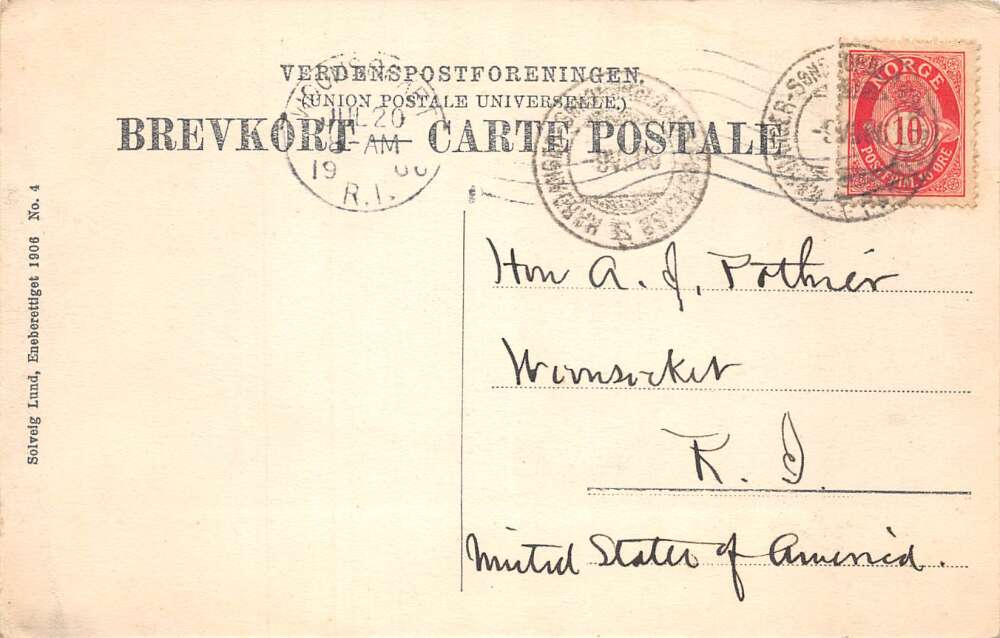 VERDENSPOSTFORENINGEN.
(UNION POSTALE UNIVERSELLE.)
BREVKORT — CARTE POSTALE
JUL 20
AM
19
R.I.
NORGE
10
POSTFRIM. 10 ØRE
Hon A. J. Pothier
Woonsocket
R. I.
United States of America.
Solveig Lund, Eneberettiget 1906 No. 4